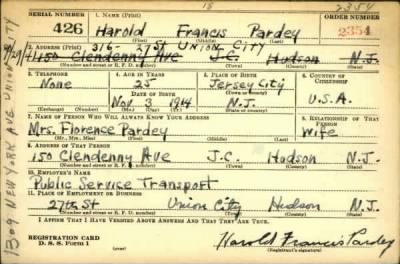 18 2354
SERIAL NUMBER 1. NAME (Print) ORDER NUMBER
426 Harold Francis Pardey 2354
(First) (Middle) (Last)
316- 27 St UNION CITY
2. ADDRESS (Print)
150 Clendenny Ave J.C. Hudson N.J.
(Number and street or R. F. D. number) (Town) (County) (State)
3. TELEPHONE 4. AGE IN YEARS 5. PLACE OF BIRTH 6. COUNTRY OF CITIZENSHIP
None 25 Jersey City
DATE OF BIRTH
Nov 3 1914 N.J. U.S.A.
(Exchange) (Number) (Mo.) (Day) (Yr.) (State or country)
7. NAME OF PERSON WHO WILL ALWAYS KNOW YOUR ADDRESS 8. RELATIONSHIP OF THAT PERSON
Mrs. Florence Pardey Wife
(Mr., Mrs., Miss) (First) (Middle) (Last)
9. ADDRESS OF THAT PERSON
150 Clendenny Ave J.C. Hudson N.J.
(Number and street or R. F. D. number) (Town) (County) (State)
10. EMPLOYER'S NAME
Public Service Transport
11. PLACE OF EMPLOYMENT OR BUSINESS
27th St Union City Hudson N.J.
(Number and street or R. F. D. number) (Town) (County) (State)
I AFFIRM THAT I HAVE VERIFIED ABOVE ANSWERS AND THAT THEY ARE TRUE.
REGISTRATION CARD
D. S. S. Form 1
Harold Francis Pardey
(Registrant's signature)
1309 NEW YORK AVE UNION CITY